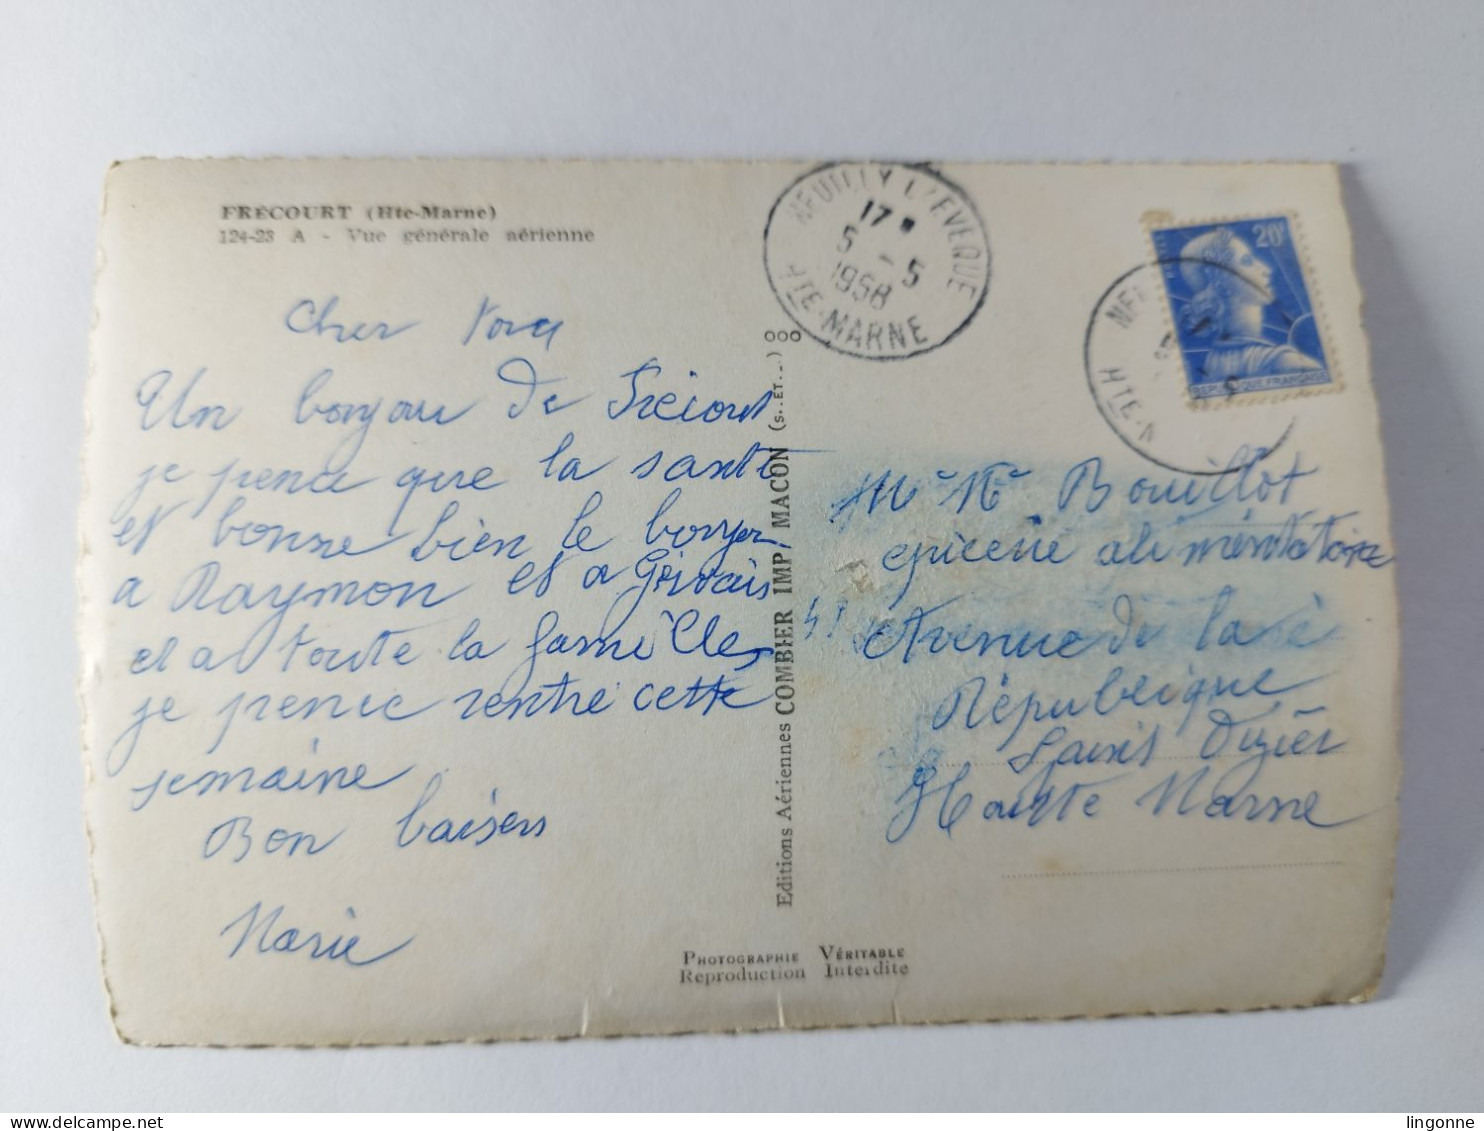 FRÉCOURT (Hte-Marne)
124-23 A - Vue générale aérienne
Cher
Un bonjour de Frécourt
je pence que la sante
et bonne bien le bonjour
a Raymon et a Gervais
et a toute la famille
je pence rentre cette
semaine
Bon baisers
Marie
NEUILLY L'EVEQUE
17
5 - 5
1958
HTE-MARNE
20F
REPUBLIQUE FRANÇAISE
Editions Aériennes COMBIER IMP. MACON (S.-ET-.)
Mr Mr Bouillot
epicerie alimentatoire
Avenue de la
République
Saint Dizier
Haute Marne
PHOTOGRAPHIE VÉRITABLE
Reproduction Interdite
lingonne